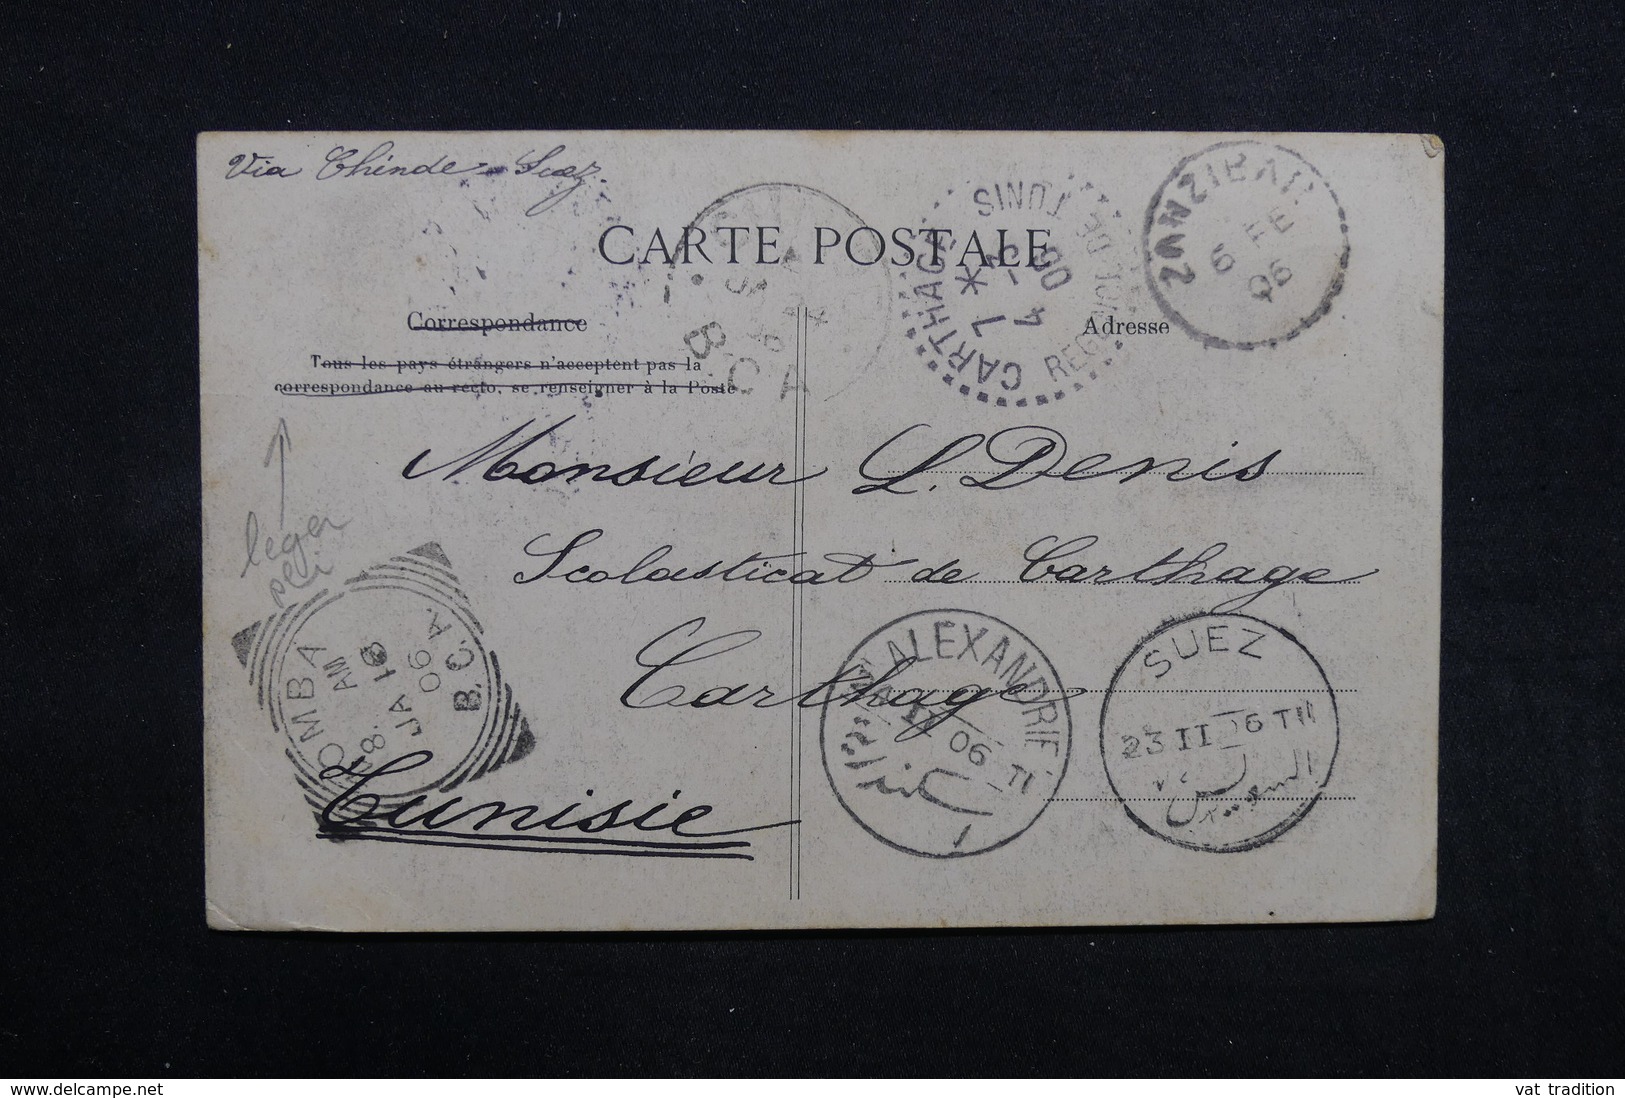 Via Chinde - Suez
CARTE POSTALE
Correspondance
Adresse
Tous les pays étrangers n'acceptent pas la
correspondance au recto, se renseigner à la Poste
leger
pli
Monsieur L. Denis
Scolasticat de Carthage
Carthage
Tunisie
CARTHAGE
REGENCE DE TUNIS
ZANZIBAR
6 FE
06
B.C.A.
OMBA
AM
JA 16
06
B.C.A.
ALEXANDRIE
II 06
SUEZ
23 II 06 T III
السويس
delcampe.net
vat tradition